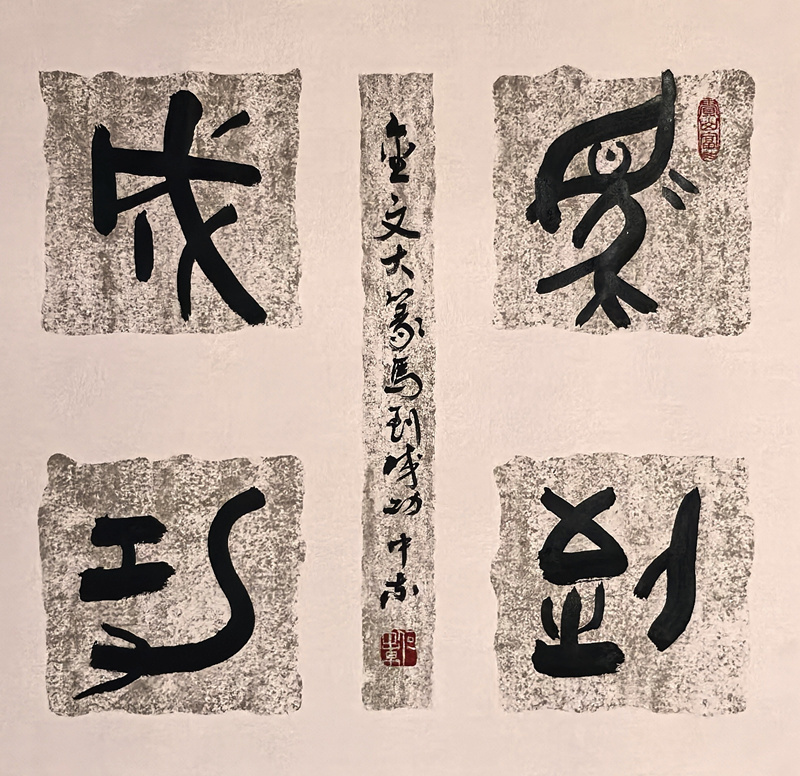 馬到
成功
金文大篆馬到成功中